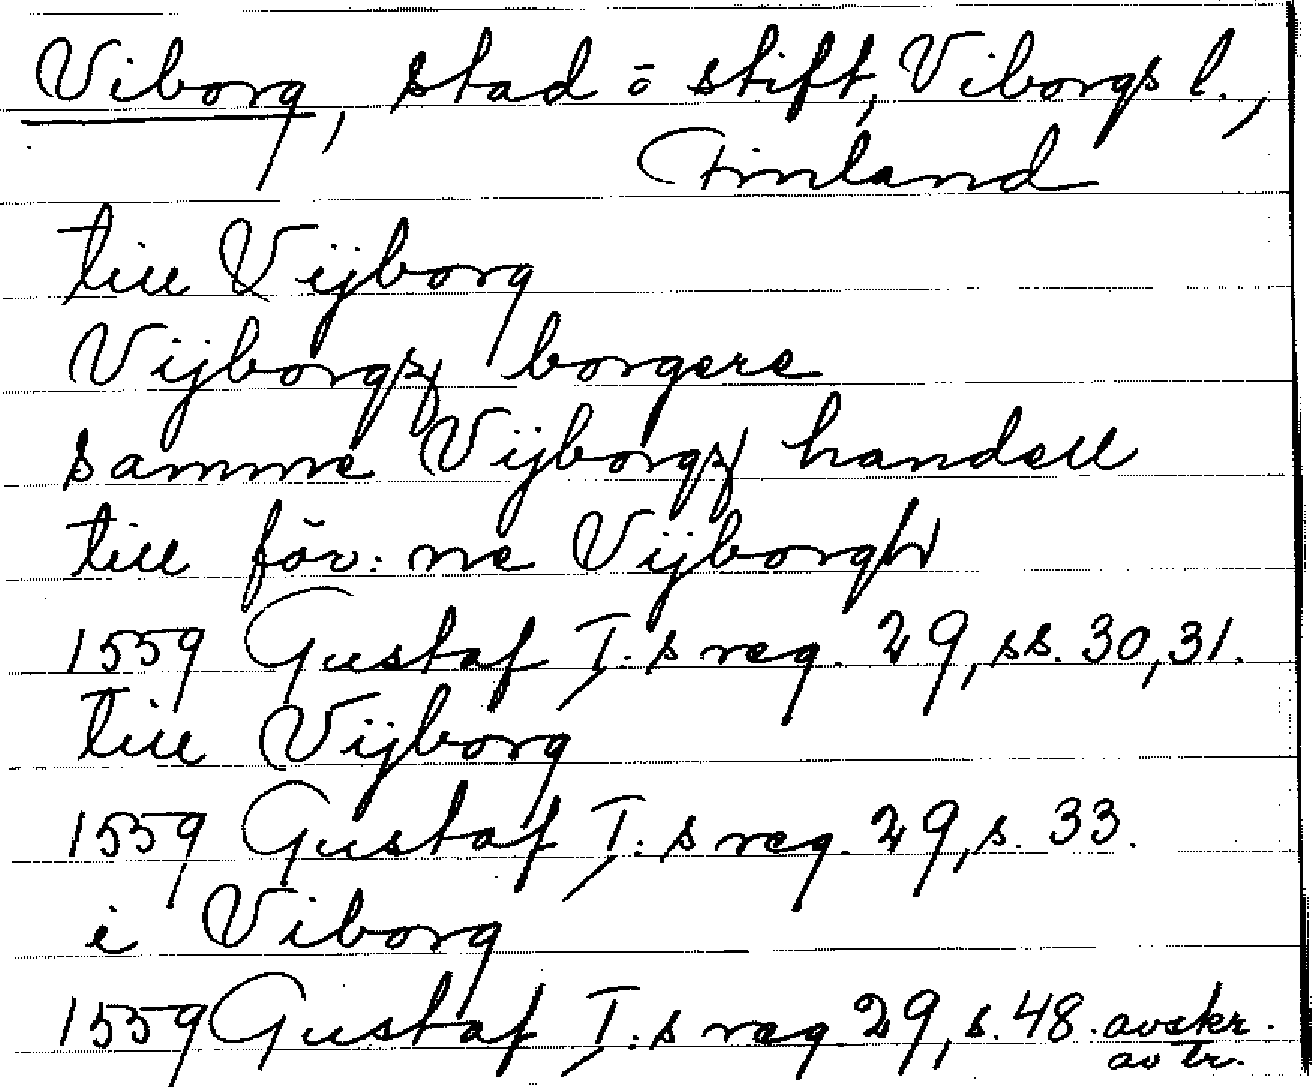 Viborg, stad o stift, Viborgs l.,
Finland
till Vijborg
Vijborgs borgere
samme Vijborgs handell
till för:ne Vijborgh
1559 Gustaf I:s reg. 29, ss. 30, 31.
till Vijborg
1559 Gustaf I:s reg. 29, s. 33.
i Viborg
1559 Gustaf I:s reg. 29, s. 48. avskr.
av tr.